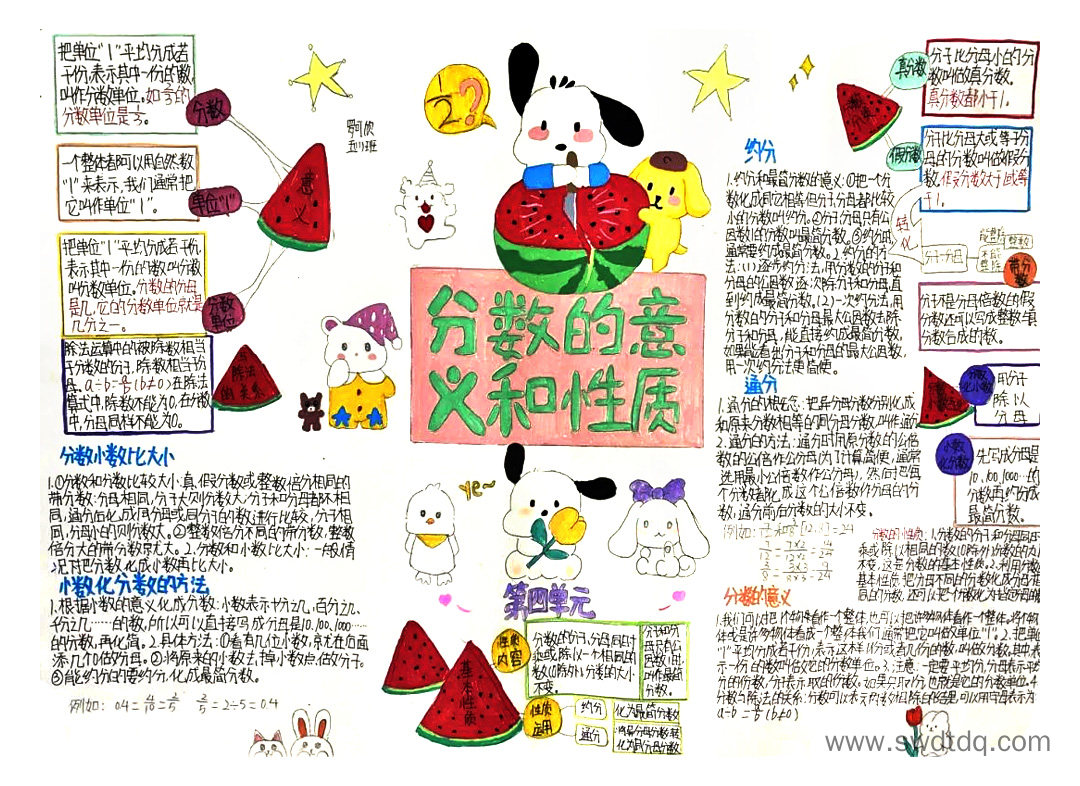 把单位"1"平均分成若
干份,表示其中一份的数
叫作分数单位。如:
分数单位是
分数
一个整体都可以用自然数
"1"来表示,我们通常把
它叫作单位"1"。
单位"1"
把单位"1"平均分成若干份,
表示其中一份的数叫分数
叫分数单位。分数的分母
是几,它的分数单位就是
几分之一。
分数
单位
意
义
除法运算中的被除数相当
于分数的分子,除数相当分
母。a÷b=a/b(b≠0)在除法
算式中,除数不能为0,在分数
中,分母同样不能为0。
与
除法
的关系
五(1)班
1/2?
分数的意
义和性质
ye~
第四单元
分数小数比大小
1.①分数和分数比较大小:真、假分数或整数倍分相同的
带分数:分母相同,分子大则分数大;分子和分母都不相
同,通分后化成同分母或同分子的数进行比较,分子相
同,分母小的则分数大。②整数倍分不同的带分数,整数
倍分大的带分数就大。2.分数和小数比大小:一般情
况下把分数化成小数再比大小。
小数化分数的方法
1.根据小数的意义化成分数:小数表示十分之几,百分之几、
千分之几……的数,所以可以直接写成分母是10,100,1000……
的分数,再化简。2.具体方法:①看有几位小数,就在1后面
添几个0做分母。②将原来的小数去掉小数点,做分子。
③能约分的要约分化成最简分数。
例如: 0.4=4/10=2/5 2/5=2÷5=0.4
基本性质
性质
内容
分数的分子、分母同时
乘或除以一个相同的
数(0除外),分数的大小
不变。
分子和分
母只有公
因数1的
叫作最简
分数。
性质
运用
约分
化为最简分数
通分
将异分母分数转
化为同分母分数
约分
1.约分和最简分数的意义:①把一个分
数化成同它相等但分子、分母都比较
小的分数叫约分。②分子分母只有公
因数1的分数叫最简分数。③约分时,
通常要约成最简分数。2.约分的方
法:(1)逐步约分法,用分数的分子和
分母的公因数逐次除分子和分母,直
到约成最简分数。(2)一次约分法,用
分数的分子和分母最大公因数去除
分子和分母,能直接约成最简分数,
如果能看出分子和分母的最大公因数,
用一次约分法更简便。
通分
1.通分的概念:把异分母分数分别化成
和原来分数相等的同分母分数叫作通分
2.通分的方法:通分时用原分数的公倍
数的公倍作公分母(为了计算简便,通常
选用最小公倍数作公分母),然后把每
个分数都化成这个公倍数作分母的分
数,通分前后分数的大小不变。
真分数
分子比分母小的分
数叫做真分数。
真分数都小于1。
假分数
分子比分母大或等于分
母的分数叫做假分
数,假分数大于1或等
于1。
转
化
分子÷分母
能整除
整数
不能
整除
带分
数
分子不是分母倍数的假
分数还可以写成整数与真
分数合成的数。
分数
化小数
用分子
除以
分母
小数
化分数
先写成分母是
10,100,1000…的
分数再约分成
最简分数。
分数的性质:1.分数的分子和分母同时
乘或除以相同的数(0除外)分数的大小
不变,这是分数的基本性质。2.利用分数
分数的意义